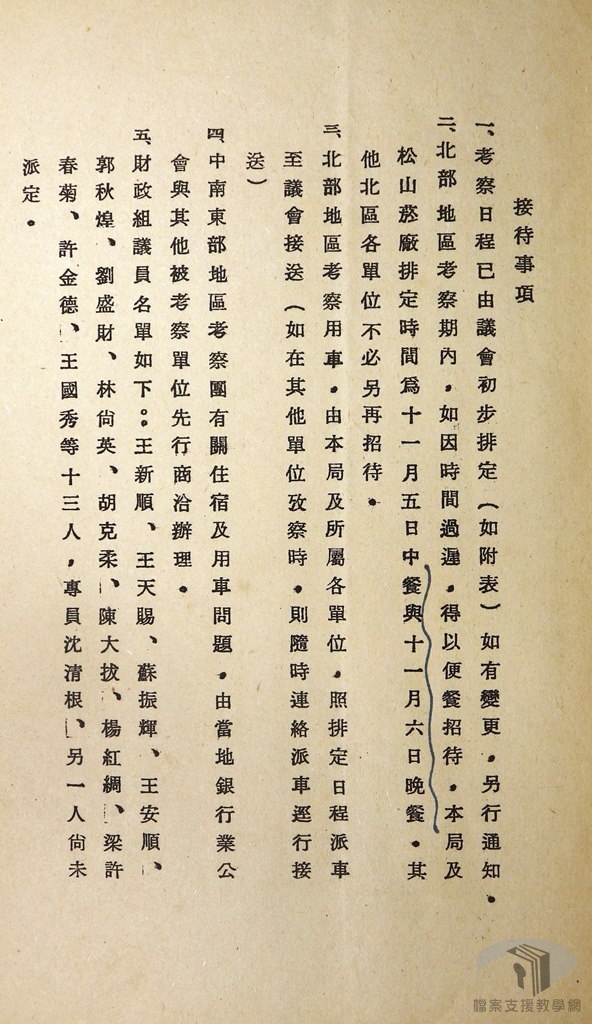 接待事項
一、考察日程已由議會初步排定（如附表）如有變更，另行通知。
二、北部地區考察期內，如因時間過遲，得以便餐招待，本局及
松山菸廠排定時間爲十一月五日中餐與十一月六日晚餐。其
他北區各單位不必另再招待。
三、北部地區考察用車，由本局及所屬各單位，照排定日程派車
至議會接送（如在其他單位攷察時，則隨時連絡派車逕行接
送）
四、中南東部地區考察團有關住宿及用車問題，由當地銀行業公
會與其他被考察單位先行商洽辦理。
五、財政組議員名單如下：王新順、王天賜、蘇振輝、王安順、
郭秋煌、劉盛財、林尙英、胡克柔、陳大拔、楊紅綢、梁許
春菊、許金德、王國秀等十三人，專員沈清根、另一人尙未
派定。
檔案支援教學網